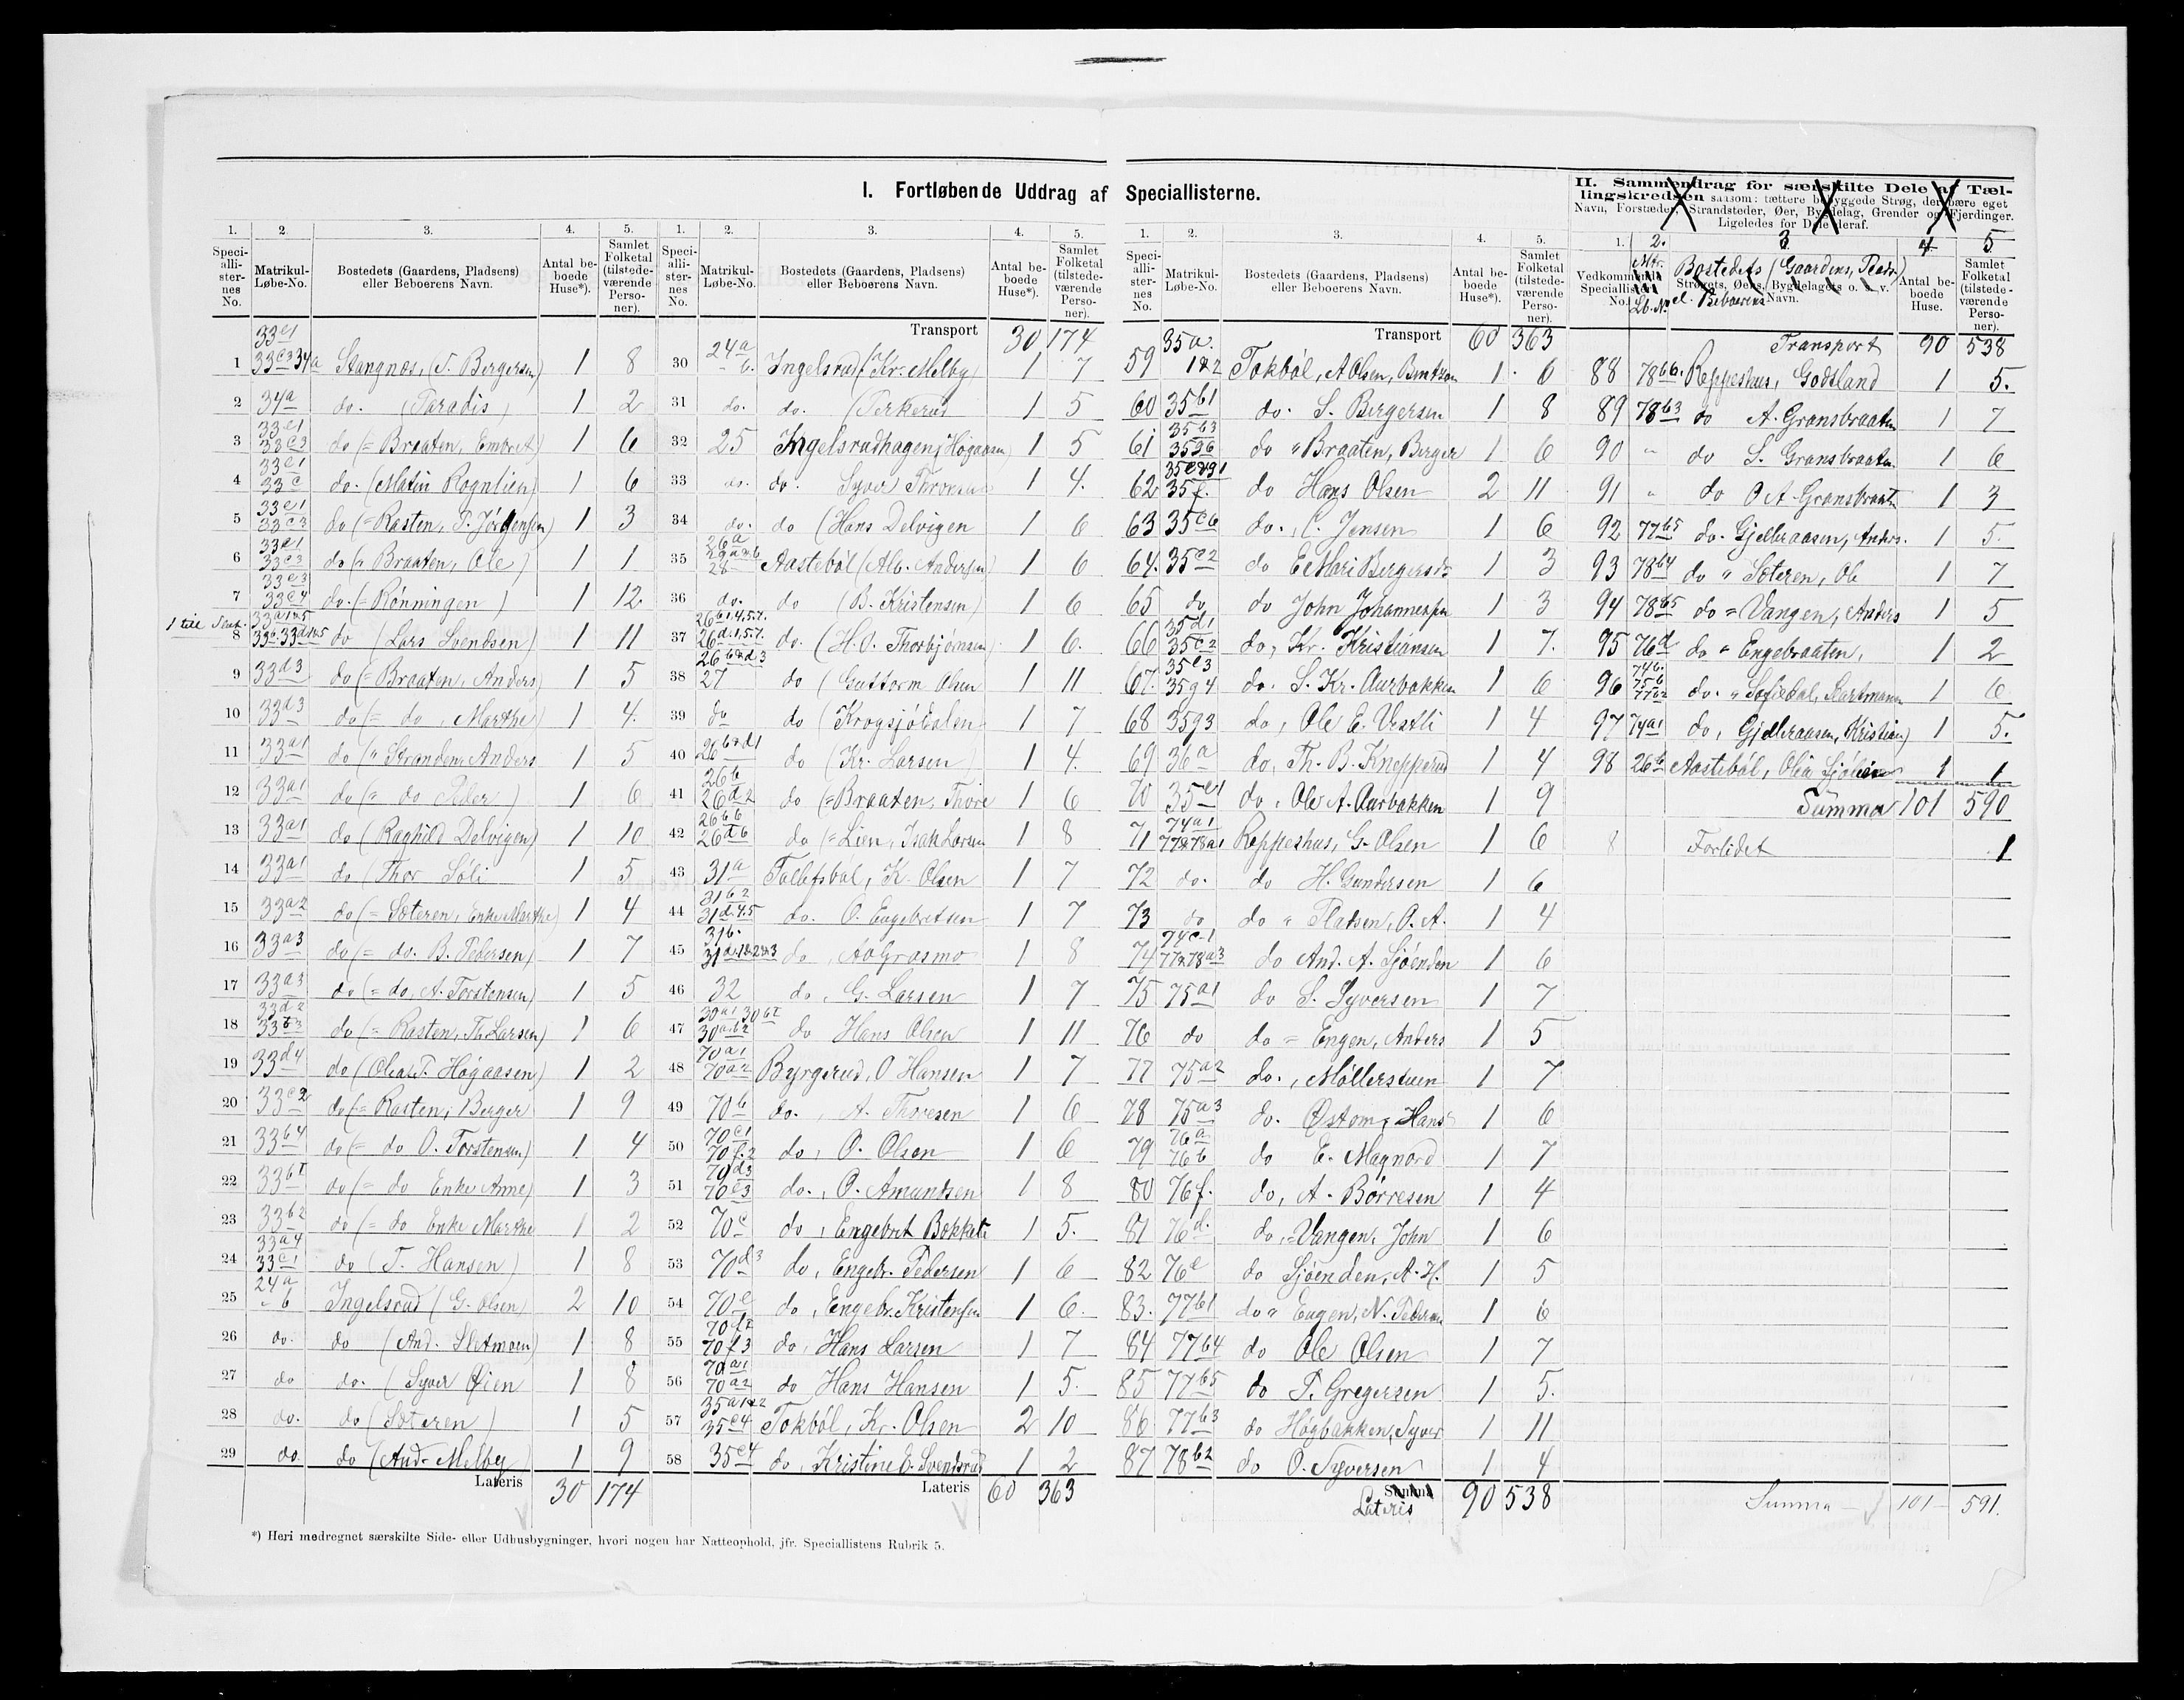 I. Fortløbende Uddrag af Speciallisterne.
1. 2. 3. 4. 5.
Speciallisternes No. Matrikul-Løbe-No. Bostedets (Gaardens, Pladsens) eller Beboerens Navn. Antal beboede Huse*). Samlet Folketal (tilstedeværende Personer).
1 33c1 33c3 34a Stangnæs, (T. Bergersen) 1 8
2 34a do. (Paradis) 1 2
3 33c1 33c3 do (= Braaten, Embret) 1 6
4 33c1 33c do. (Matin Rognlien) 1 6
5 33c1 33c3 do (= Rasten, T. Jørgensen) 1 3
6 33c1 33c3 do (= Braaten, Ole) 1 1
7 33c3 33c4 do. (= Rønningen) 1 12
8 do (Lars Svendsen) 1 11
9 33d3 do (= Braaten, Anders) 1 5
10 33d3 do (= do, Marthe) 1 4.
11 33a1 do (" Stranden Anders 1 5
12 33a1 do (" do Peder) 1 6
13 33a1 do (Raghild Delvigen) 1 10
14 33a1 do (Thor Søli 1 5
15 33a2 do (= Sæteren, Enke Marthe) 1 4
16 33a3 do (= do. B. Pedersen) 1 7
17 33a3 do (= do, A. Torstensen) 1 5
18 33d2 33b3 do (= Rasten, Th. Larsen) 1 6
19 33d4 do (Olea T. Høgaasen) 1 2
20 33c2 do (= Rasten, Berger 1 9
21 33b4 do (= do O. Torstensen) 1 4
22 33b1 do (= do Enke Anne) 1 3
23 33b2 do (= do Enke Marthe 1 2
24 33a4 33c1 do (T. Hansen) 1 8
25 24a " b Ingelsrud (G. Olsen) 2 10
26 do. do (And. Sletmoen) 1 8
27 do do. (Syver Øien 1 8
28 do. do (Sæteren) 1 5
29 do. do (And. Melby 1 9
Lateris 30 174
*) Heri medregnet særskilte Side- eller Udhusbygninger, hvori nogen har Natteophold, jfr. Speciallistens Rubrik 5.
1. 2. 3. 4. 5.
Speciallisternes No. Matrikul-Løbe-No. Bostedets (Gaardens, Pladsens) eller Beboerens Navn. Antal beboede Huse*). Samlet Folketal (tilstedeværende Personer).
Transport 30 174
30 24a " b. Ingelsrud (Kr. Melby) 1 7
31 do. do. (Perkerud 1 5
32 25 Ingelsrudhagen, Høgaasen) 1 5
33 do. do. Syver Thoresen 1 4.
34 do. do (Hans Delvigen 1 6
35 26a 29a&b 28 Aastebøl (Alb. Andersen) 1 6
36 do. do (B. Kristensen) 1 6
37 26b1,4.5.7. 26d.1,5.7. do. (H. O. Thorbjørnsen) 1 6.
38 26b&d3 27 do (Guttorm Olsen 1 11
39 do do (Krogsjødalen 1 7
40 26b&d1 do (Kr. Larsen) 1 4.
41 26b 26d2 do (= Braaten, Thore 1 6
42 26b6 26d6 do (= Lien, Isak Larsen 1 8
43 31a Tollefsbøl, K. Olsen 1 7
44 31b2 31d.4.5 do. O. Engebretsen 1 7
45 31b. do, Aa Grasmo 1 8
46 32 do, G. Larsen 1 7
47 30a1 30b2 do Hans Olsen 1 11
48 70a1 70a2 Byrgerud, O Hansen 1 7
49 70b do., A. Thoresen 1 6
50 70c1 70f.2 do, O. Olsen 1 6
51 70d3 70c3 do., O. Amundsen 1 8
52 70c do, Engebret Bokkeli 1 5.
53 70d3 do, Engebr. Pedersen 1 6
54 70e do, Engebr. Kristensen 1 6.
55 70d2 70f3 do, Hans Larsen 1 7
56 70a1 70a2 do Hans Hansen 1 5.
57 35a1&2 35c4 Tokbøl, Kr. Olsen 2 10
58 35c4 do, Kristine E. Svendsrud 1 2
Lateris 60 363
1. 2. 3. 4. 5.
Speciallisternes No. Matrikul-Løbe-No. Bostedets (Gaardens, Pladsens) eller Beboerens Navn. Antal beboede Huse*). Samlet Folketal (tilstedeværende Personer).
Transport 60 363
59 35a. 1&2 Tokbøl, A Olsen, Berntsen 1 6
60 35b1 do. S. Bergersen 1 8
61 35b3 35g6 do " Braaten, Berger 1 6
62 35f. do Hans Olsen 2 11
63 35c6 do., C. Jensen 1 6
64. 35c2 do E Mari Bergersd. 1 3
65 do do John Johannesen 1 3
66 35d1 35c2 do, Kr. Kristiansen 1 7.
67. 35c3 35g4 do. S. Kr. Aurbakken 1 6
68 35g3 do, Ole E. Vestli 1 4
69 36a do, Th. B. Knepperud 1 4
70 35e1 do, Ole A. Aurbakken 1 9
71 74a1 77&78a1 Reppeshus, G. Olsen 1 6
72 do. do H. Gundersen 1 6
73 do do " Pladsen, O. A. 1 4
74 74c-1 77&78a3 do And. A. Sjøenden 1 6
75 75a1 do S. Syversen 1 7
76 do do = Engen, Anders 1 5
77 75a2 do., Møllerstuen 1 7
78 75a3 do. Østom, Hans 1 6
79 76a 76b do E. Magnord 1 7
80 76f. do, A. Børresen 1 4
81 76d. do, = Vangen, John 1 6
82 76e do Sjøenden, A. H. 1 5
83. 77b1 do " Engen, N. Pedersen 1 6
84 77b4 do Ole Olsen 1 7
85 77b5 do T. Gregersen 1 5.
86 77b3 do Høgbakken, Syver 1 11
87 78b2 do O. Syversen 1 4
Summa
Lateris 90 538
II. Sammendrag for særskilte Dele af Tællingskredsen saasom: tættere bebyggede Strøg, der bære eget Navn, Forstæder, Strandsteder, Øer, Bygdelag, Grender og Fjerdinger. Ligeledes for Dele deraf.
1. 2. 3 4 5
Vedkommende Speciallisters No. Mtr. Lb. No. Bostedets (Gaardens, Plads.) Strøgets, Øens, Bygdelagets o. s. v. Navn. el. Beboerens Antal beboede Huse. Samlet Folketal (tilstedeværende Personer).
Transport 90 538
88 78b6. Reppeshus, Godsland 1 5.
89 78b3 do A. Gransbraaten 1 7
90 " do S. Gransbraaten 1 6
91 " do O A. Gransbraat. 1 3
92 77b5 do. Gjelleraasen, Anders. 1 5.
93 78b4 do " Sæteren, Ole 1 7
94 78b5 do = Vangen, Anders 1 5
95 76d do " Engebraaten, 1 2
96 74b. 75b 77b2 do. " Sofiedal, 1 6
97 74a1 do, Gjelleraasen, Kristian) 1 5.
98 26b Aastebøl, Olia 1 1
Summa 101 590
Forlidet 1
Summa 101 591.